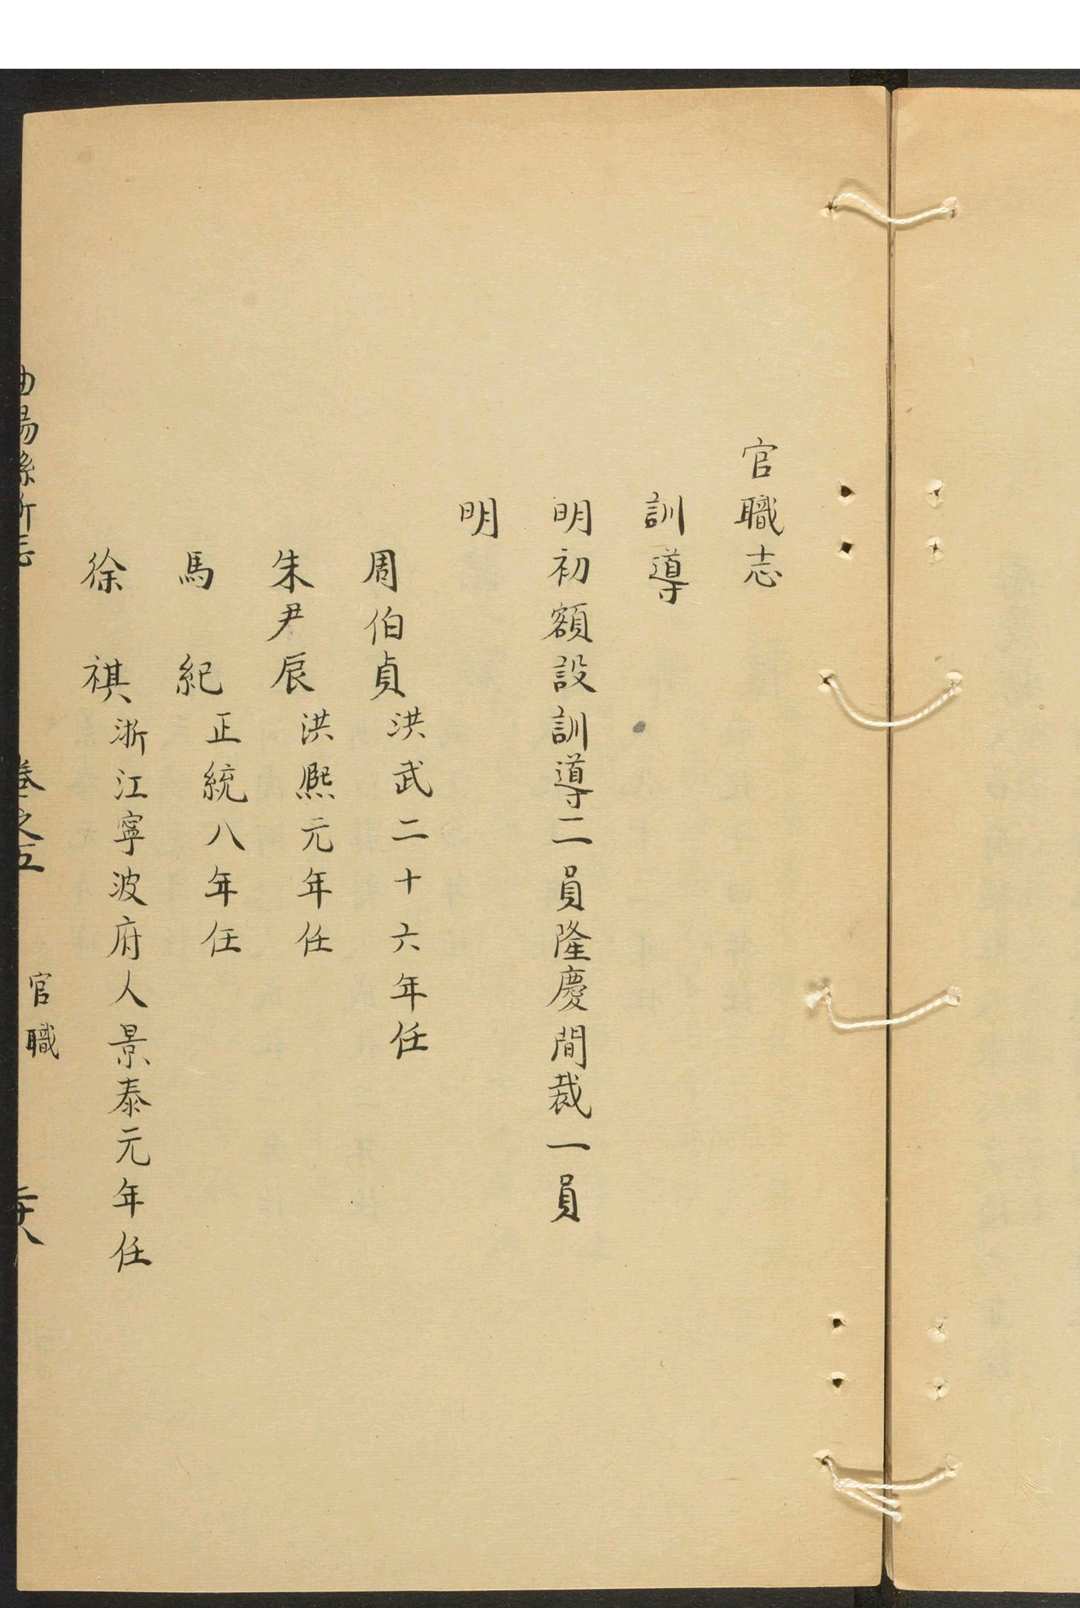 官職志
訓導
明初額設訓導二員隆慶間裁一員
明
周伯貞洪武二十六年任
朱尹辰洪熈元年任
馬紀正統八年任
徐祺浙江寧波府人景泰元年任
曲陽縣新志 卷之五 官職 二十八